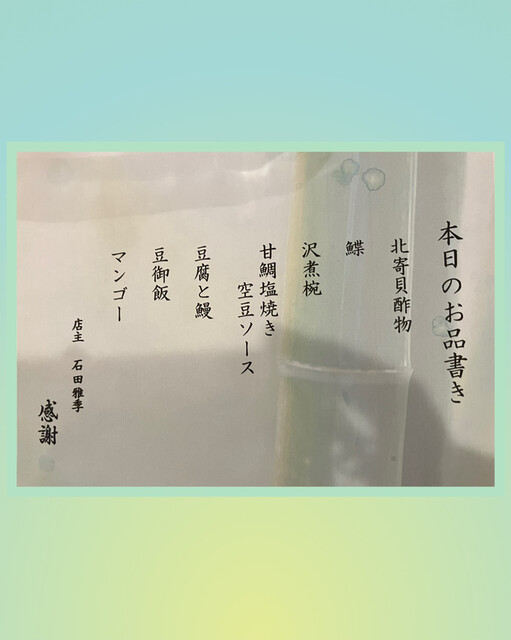 本日のお品書き
北寄貝酢物
鰈
沢煮椀
甘鯛塩焼き
空豆ソース
豆腐と鰻
豆御飯
マンゴー
店主 石田雅季
感謝